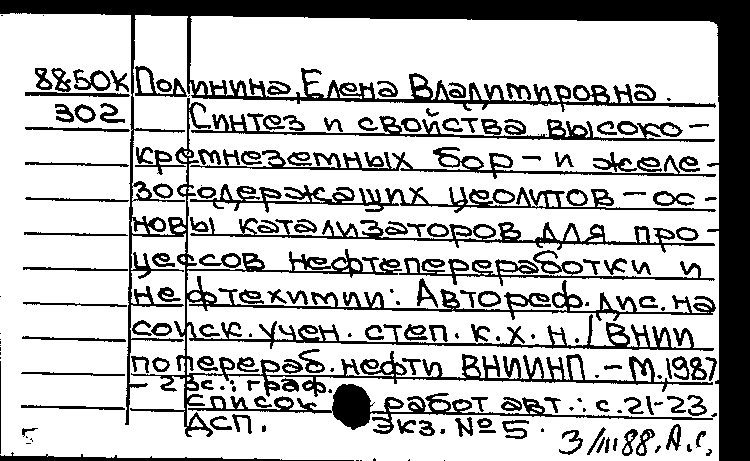 88-50К Полинина, Елена Владимировна.
302 Синтез и свойства высоко-
кремнеземных бор- и желе-
зосодержащих цеолитов - ос-
новы катализаторов для про-
цессов нефтепереработки и
нефтехимии: Автореф. дис. на
соиск. учен. степ. к. х. н. / ВНИИ
по перераб. нефти ВНИИНП. - М., 1987
- 23с.: граф.
Список работ авт.: с. 21-23.
ДСП. Экз. № 5.
3/III 88. А.С.
5